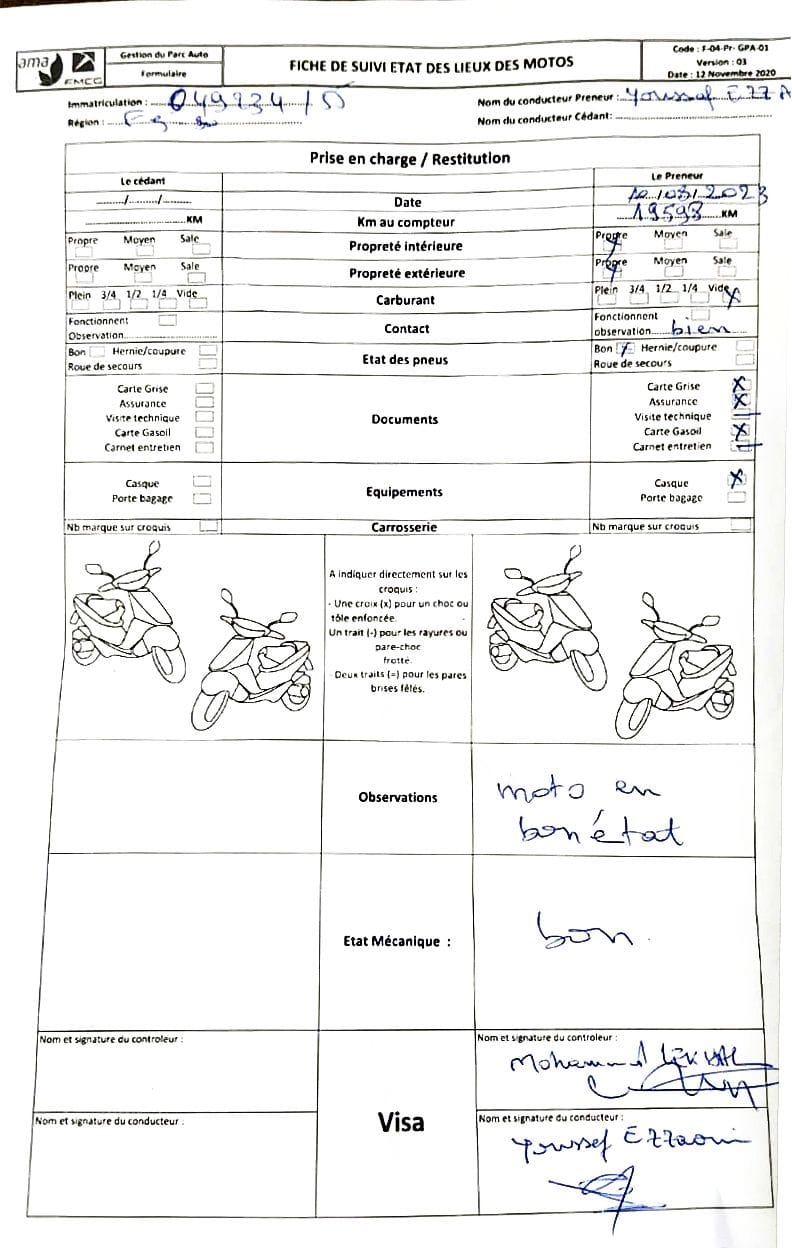 ama EMCG
Gestion du Parc Auto
Formulaire
FICHE DE SUIVI ETAT DES LIEUX DES MOTOS
Code : F-04-Pr- GPA-01
Version : 03
Date : 12 Novembre 2020
Immatriculation :
Nom du conducteur Preneur : Youssef EZZA
Région :
Nom du conducteur Cédant:
Prise en charge / Restitution
Le cédant
Le Preneur
....../....../...... Date /03/2023
KM Km au compteur 19593 KM
Propre Moyen Sale Propreté intérieure Propre Moyen Sale
Propre Moyen Sale Propreté extérieure Propre Moyen Sale
Plein 3/4 1/2 1/4 Vide Carburant Plein 3/4 1/2 1/4 Vide x
Fonctionnent Contact Fonctionnent
Observation observation bien
Bon Hernie/coupure Etat des pneus Bon Hernie/coupure
Roue de secours Roue de secours
Carte Grise Carte Grise x
Assurance Assurance x
Visite technique Documents Visite technique
Carte Gasoil Carte Gasoil x
Carnet entretien Carnet entretien
Casque Casque x
Porte bagage Equipements Porte bagage
Nb marque sur croquis Carrosserie Nb marque sur croquis
A indiquer directement sur les
croquis :
- Une croix (x) pour un choc ou
tôle enfoncée.
Un trait (-) pour les rayures ou
pare-choc
frotté.
- Deux traits (=) pour les pares
brises fêlés.
Observations
moto en
bon état
Etat Mécanique :
bon.
Nom et signature du controleur :
Nom et signature du controleur :
Mohammed
Visa
Nom et signature du conducteur :
Nom et signature du conducteur :
Youssef EZZaoui